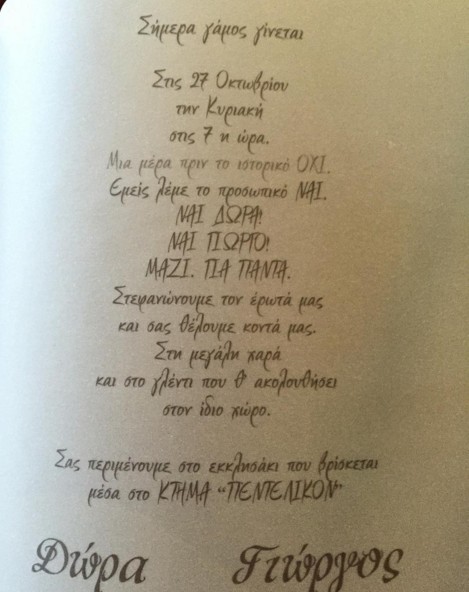 Σήμερα γάμος γίνεται
Στις 27 Οκτωβρίου
την Κυριακή
στις 7 η ώρα.
Μια μέρα πριν το ιστορικό ΟΧΙ.
Εμείς λέμε το προσωπικό ΝΑΙ.
ΝΑΙ ΔΩΡΑ!
ΝΑΙ ΓΙΩΡΓΟ!
ΜΑΖΙ. ΓΙΑ ΠΑΝΤΑ.
Στεφανώνουμε τον έρωτά μας
και σας θέλουμε κοντά μας.
Στη μεγάλη χαρά
και στο γλέντι που θ' ακολουθήσει
στον ίδιο χώρο.
Σας περιμένουμε στο εκκλησάκι που βρίσκεται
μέσα στο ΚΤΗΜΑ “ΠΕΝΤΕΛΙΚΟΝ”
Δώρα Γιώργος